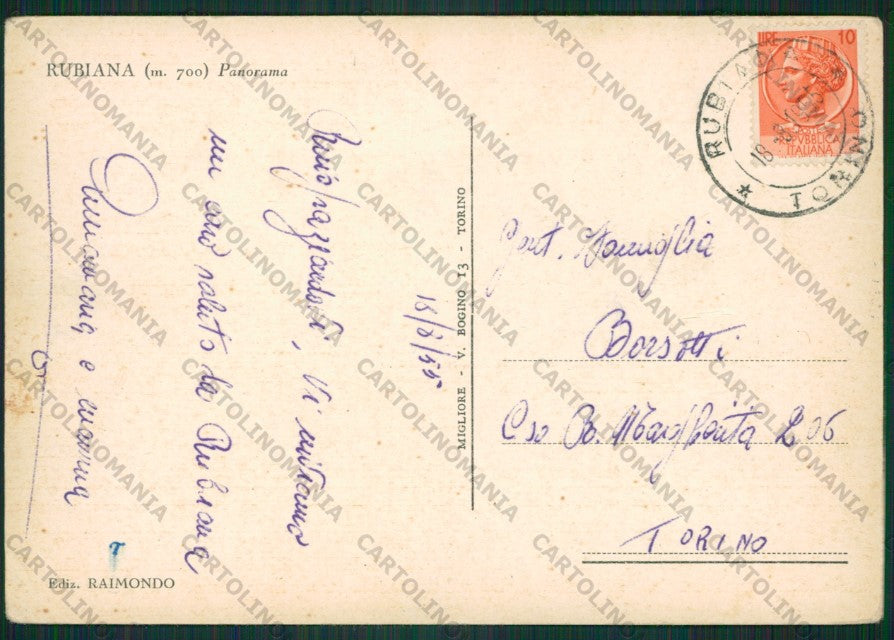 RUBIANA (m. 700) Panorama
Ringraziandovi, Vi inviamo
un caro saluto da Rubiana
e mamma
15/8/55
MIGLIORE - V. BOGINO 13 - TORINO
LIRE 10
REPUBBLICA
ITALIANA
RUBIANA
TORINO
Gent. Famiglia
Borsotti
Cso R. Margherita 206
TORINO
Ediz. RAIMONDO
CARTOLINOMANIA